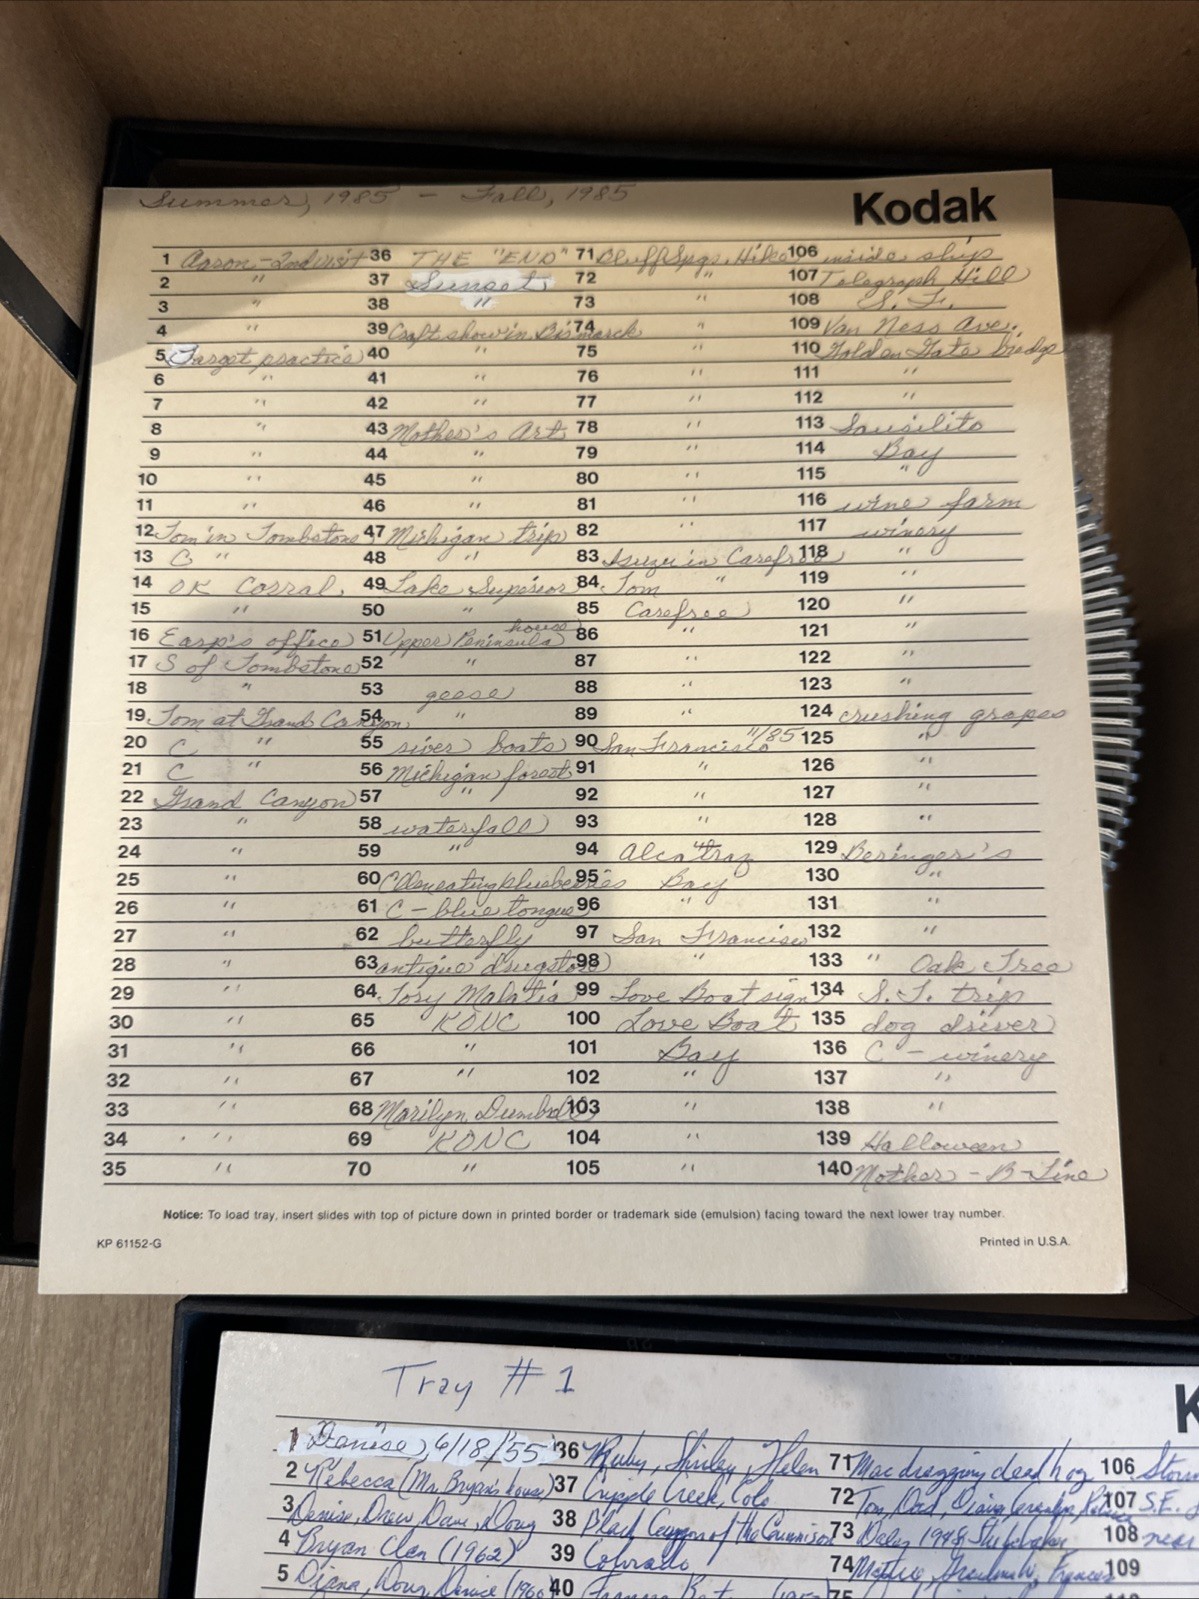 Summer, 1985 - Fall, 1985
Kodak
1 Aaron - 2nd visit 36 THE "END" 71 Bluff Spgs. Hike 106 inside ship
2 " 37 Sunset 72 " 107 Telegraph Hill
3 " 38 " 73 " 108 S.F.
4 " 39 Craft show in Bismarck 74 " 109 Van Ness Ave.
5 Target practice 40 " 75 " 110 Golden Gate bridge
6 " 41 " 76 " 111 "
7 " 42 " 77 " 112 "
8 " 43 Mother's Art 78 " 113 Sausilito
9 " 44 " 79 " 114 Bay
10 " 45 " 80 " 115 "
11 " 46 " 81 " 116 wine farm
12 Tom in Tombstone 47 Michigan trip 82 " 117 winery
13 C " 48 " 83 Isuzu in Carefree 118 "
14 OK Corral. 49 Lake Superior 84 Tom " 119 "
15 " 50 " 85 Carefree 120 "
16 Earp's office 51 Upper Peninsula house 86 " 121 "
17 S of Tombstone 52 " 87 " 122 "
18 " 53 geese 88 " 123 "
19 Tom at Grand Canyon 54 " 89 " 124 crushing grapes
20 C " 55 river boats 90 San Francisco 11/85 125 "
21 C " 56 Michigan forest 91 " 126 "
22 Grand Canyon 57 " 92 " 127 "
23 " 58 waterfall 93 " 128 "
24 " 59 " 94 Alcatraz 129 Beringer's
25 " 60 eating blueberries 95 Bay 130 "
26 " 61 C - blue tongue 96 " 131 "
27 " 62 butterfly 97 San Francisco 132 "
28 " 63 antique drugstore 98 " 133 " Oak Tree
29 " 64 Tory 99 Love Boat sign 134 S.F. trip
30 " 65 KONC 100 Love Boat 135 dog driver
31 " 66 " 101 Bay 136 C - winery
32 " 67 " 102 " 137 "
33 " 68 Marilyn 103 " 138 "
34 " 69 KONC 104 " 139 Halloween
35 " 70 " 105 " 140 Mother - B-Line
Notice: To load tray, insert slides with top of picture down in printed border or trademark side (emulsion) facing toward the next lower tray number.
KP 61152-G Printed in U.S.A.
Tray #1
K
1 Denise, 6/18/55 36 Ruby, Shirley, Helen 71 Mac dragging dead hog 106 Storm
2 Rebecca (Mr. Bryan's house) 37 Cripple Creek, Colo. 72 Tom, Dad, Diana 107 S.E.
3 Denise, Drew, Dave, Doug 38 Black Canyon of the Gunnison 73 Daley 1948 Studebaker 108 near
4 Bryan Clan (1962) 39 Colorado 74 Mattie, Frances 109
5 Diana, Doug, Denise (1960 40 75